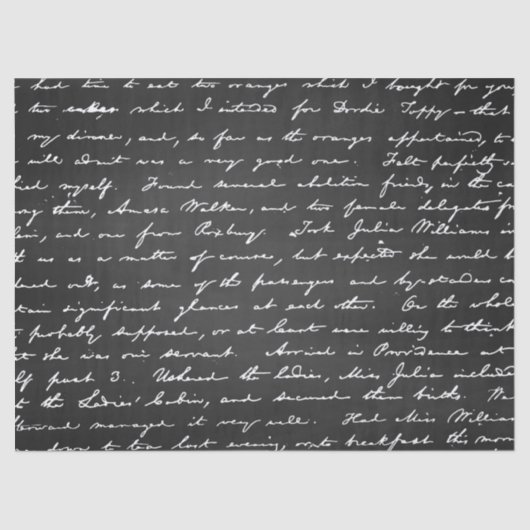 had time to eat two oranges which I bought for you
two cakes which I intended for Dordie Tappy – that
my dinner, and, so far as the oranges appertained, to
will admit was a very good one. Felt perfectly sa
fied myself. Found several abolition friends in the ca
ong them, Amasa Walker, and two female delegates fr
lem, and one from Roxbury. Took Julia Williams in
th us as a matter of course, but expected she would b
hed out, as some of the passengers and by-standers ca
tain significant glances at each other. On the whol
probably supposed, or at least were willing to think
t she was our servant. Arrived in Providence at
lf past 3. Ushered the ladies, Miss Julia included
t the Ladies' Cabin, and secured them births. We
terward managed it very well. Had Miss William
down to tea last evening, or to breakfast this mor